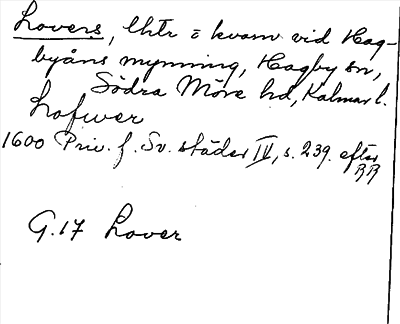 Lovers, lhtr o kvarn vid Hag-
byåns mynning, Hagby sn,
Södra Möre hd, Kalmar l.
Lofwer
1600 Priv. f. Sv. städer IV, s. 239. efter
RR
G.17 Lover